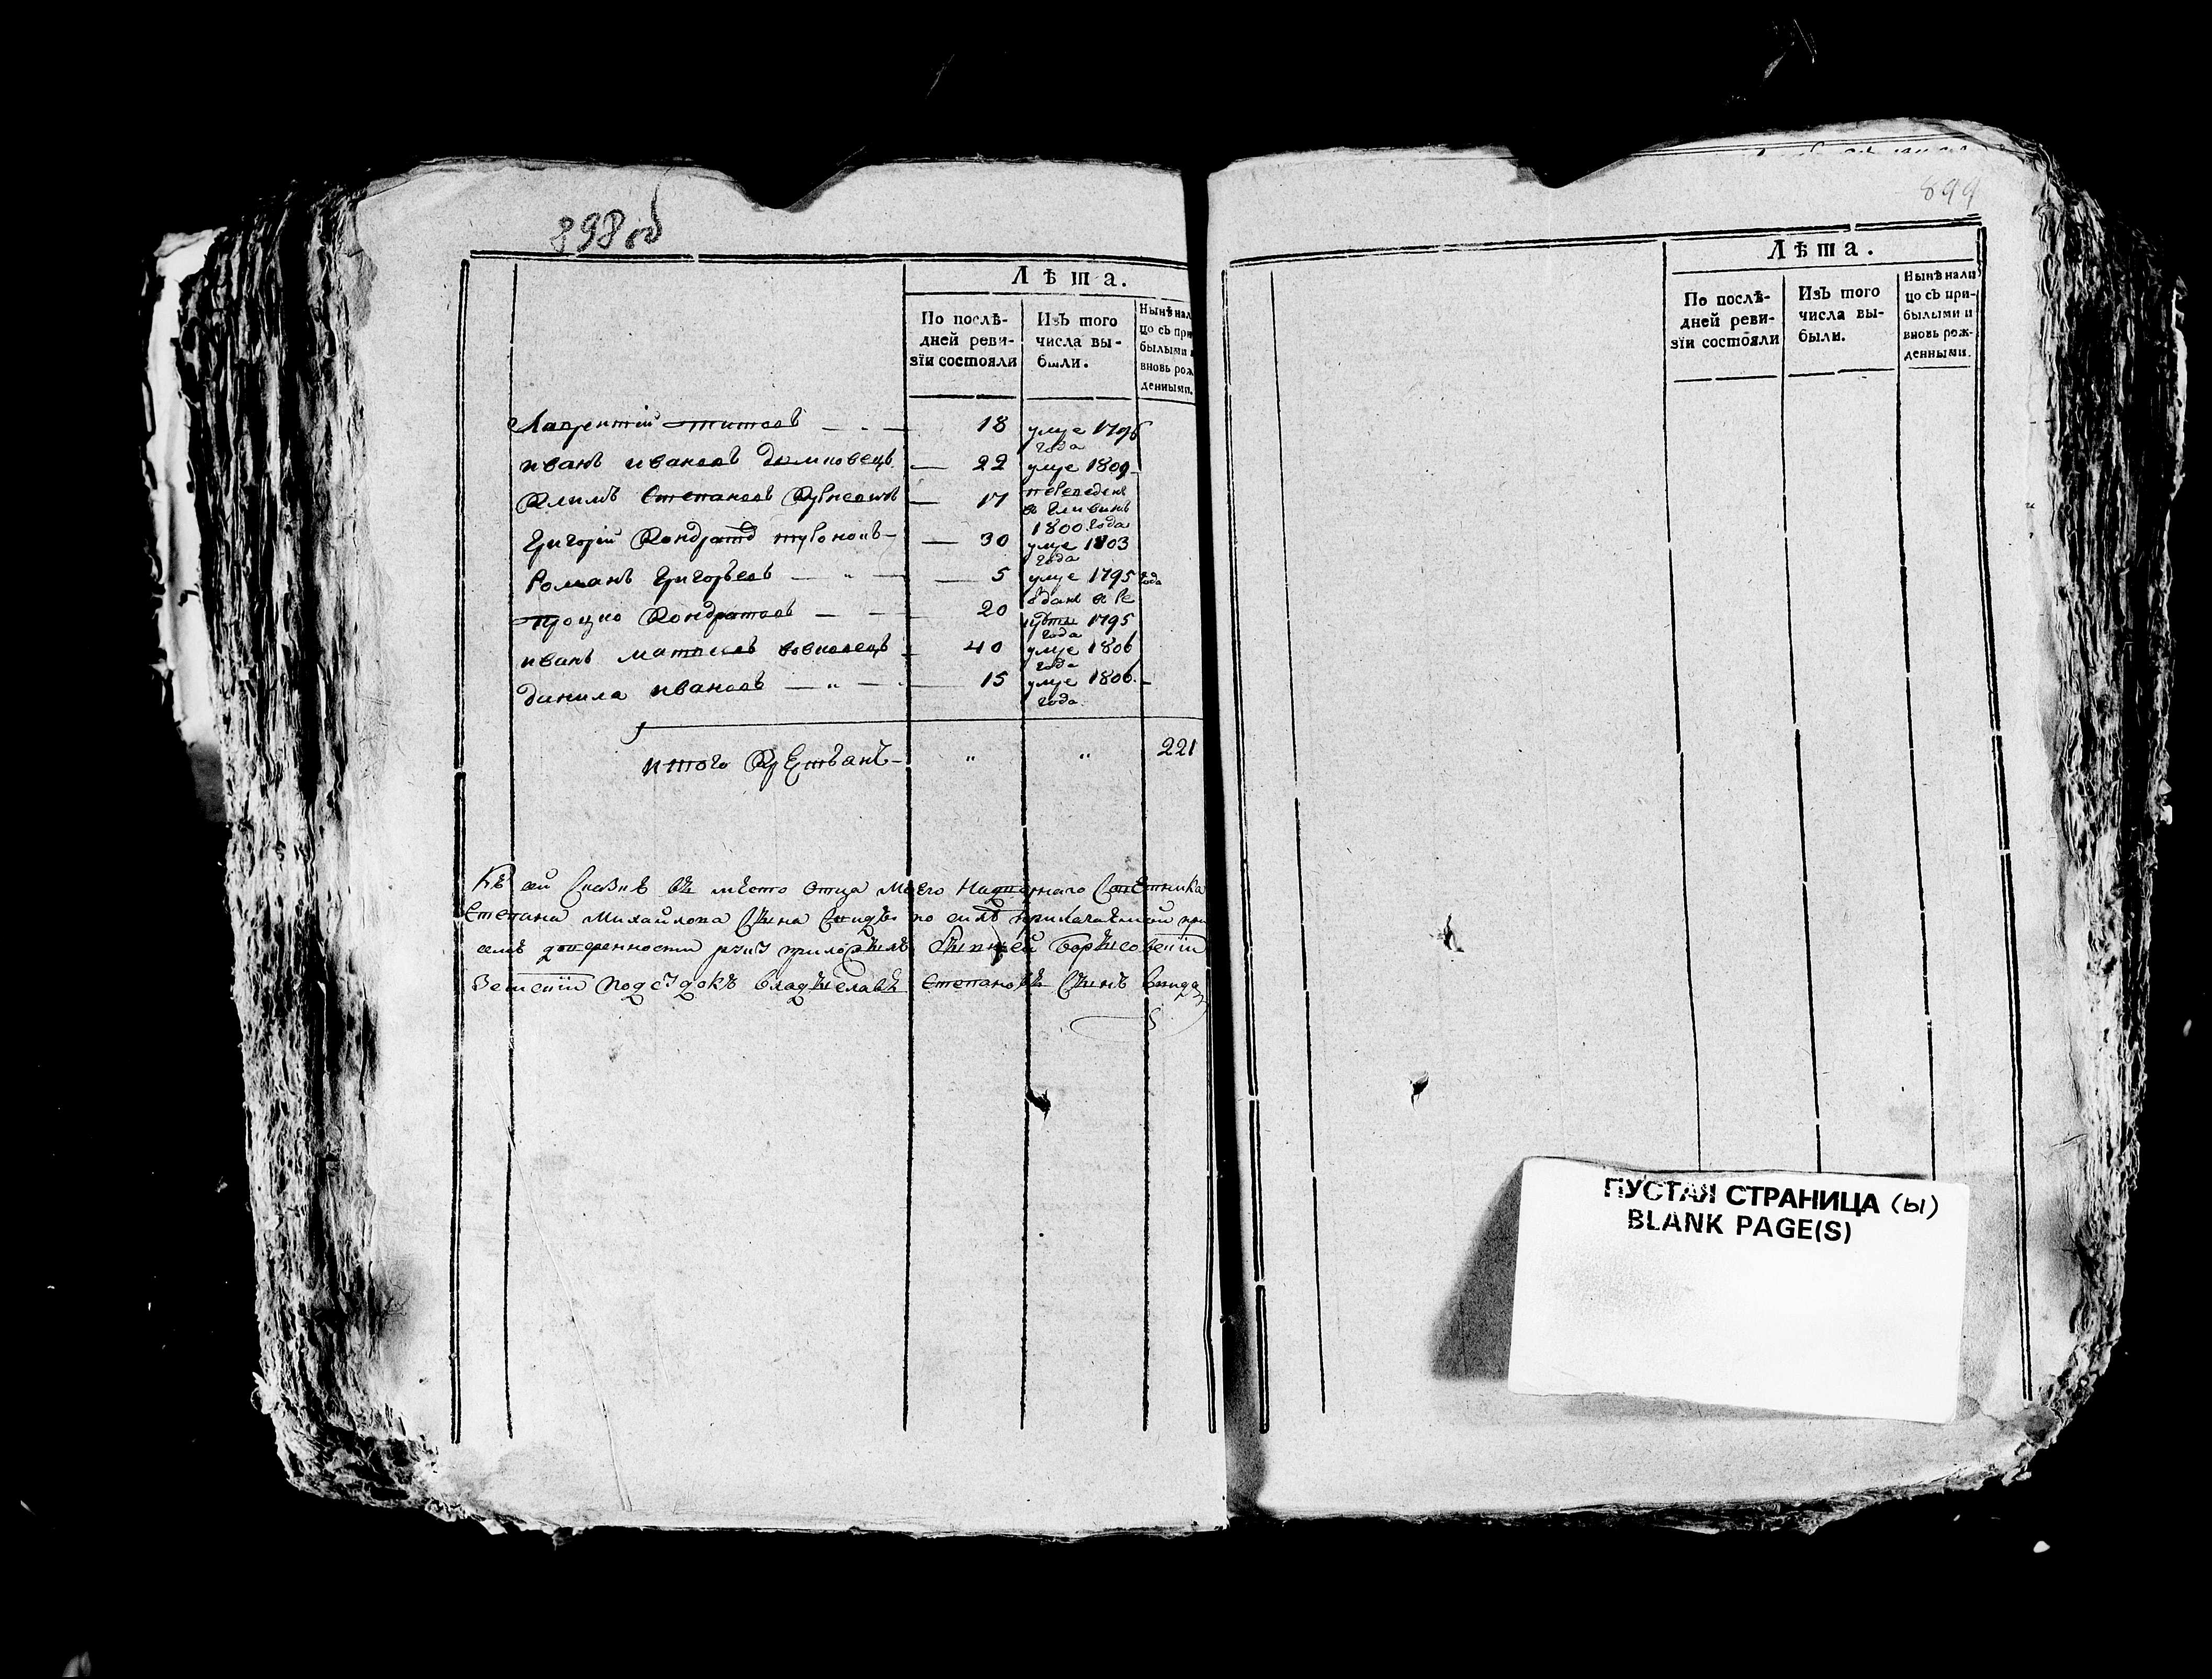 898 об
Лѣта.
По послѣ-
дней реви-
зіи состояли
Изъ того
числа вы-
были.
Нынѣ нал
цо съ при
былыми и
вновь рож
денными.
Лаврентій Титовъ 18 умре 1796
года
иванъ ивановъ 22 умре 1809
Климъ Степановъ 17 переведенъ
1800 года
Григорій 30 умре 1803
года
Романъ Григорьевъ 5 умре 1795 года
Процко Кондратовъ 20 вданъ в ре
круты 1795
года
иванъ матвеевъ 40 умре 1806
года
данила ивановъ 15 умре 1806
года
итого крестьянъ 221
Къ сей сказкѣ въ мѣсто отца моего Надворнаго Советника
Степана Михайлова сына по силѣ прилагаемой при
семъ доверенности руку приложилъ бывшей Борысовскій
Земскій подсудокъ владыславъ Степановъ сынъ
899
Лѣта.
По послѣ-
дней реви-
зіи состояли
Изъ того
числа вы-
были.
Нынѣ нали
цо съ при-
былыми и
вновь рож-
денными.
ПУСТАЯ СТРАНИЦА (Ы)
BLANK PAGE(S)